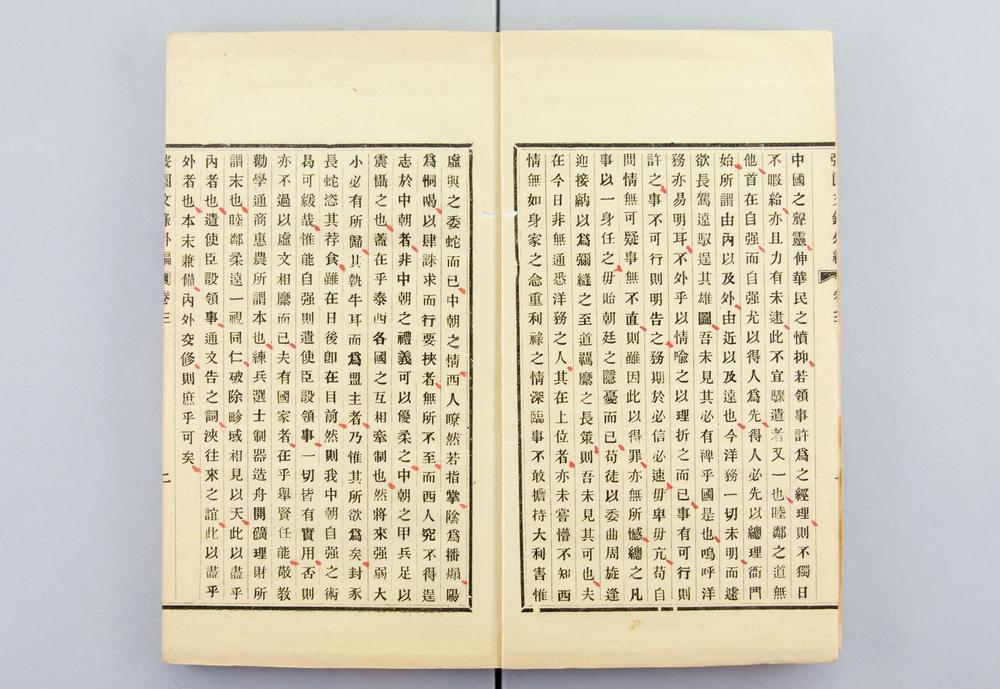 中國之聲靈伸華民之憤抑若領事許爲之經理則不獨日
不暇給亦且力有未逮此不宜驟遣者又一也睦鄰之道無
他首在自强而自强尤以得人爲先得人必先以總理衙門
始所謂由內以及外由近以及遠也今洋務一切未明而遽
欲長駕遠馭逞其雄圖吾未見其必有裨乎國是也嗚呼洋
務亦易明耳不外乎以情喩之以理折之而已事有可行則
許之事不可行則明告之務期於必信必速毋卑毋亢苟自
問情無可疑事無不直則雖因此以得罪亦無所憾總之凡
事以一身任之毋貽朝廷之隱憂而已苟徒以委曲周旋逢
迎接納以爲彌縫之至道羈縻之長策則吾未見其可也夫
在今日非無通悉洋務之人其在上位者亦未嘗懵不知西
情無如身家之念重利祿之情深臨事不敢擔持大利害惟
虛與之委蛇而已中朝之情西人瞭然若指掌陰爲播煽陽
爲恫喝以肆誅求而行要挾者無所不至而西人究不得逞
志於中朝者非中朝之禮義可以優柔之中朝之甲兵足以
震懾之也蓋在乎泰西各國之互相牽制也然將來强弱大
小必有所歸其執牛耳而爲盟主者乃惟其所欲爲矣封豕
長蛇恣其荐食雖在日後卽在目前然則我中朝自强之術
曷可緩哉惟能自强則遣使臣設領事一切皆有實用否則
亦不過以虛文相縻而已夫有國家者在乎舉賢任能敬敎
勸學通商惠農所謂本也練兵選士制器造舟開礦理財所
謂末也睦鄰柔遠一視同仁破除畛域相見以天此以盡乎
內者也遣使臣設領事通文告之詞浹往來之誼此以盡乎
外者也本末兼備內外交修則庶乎可矣